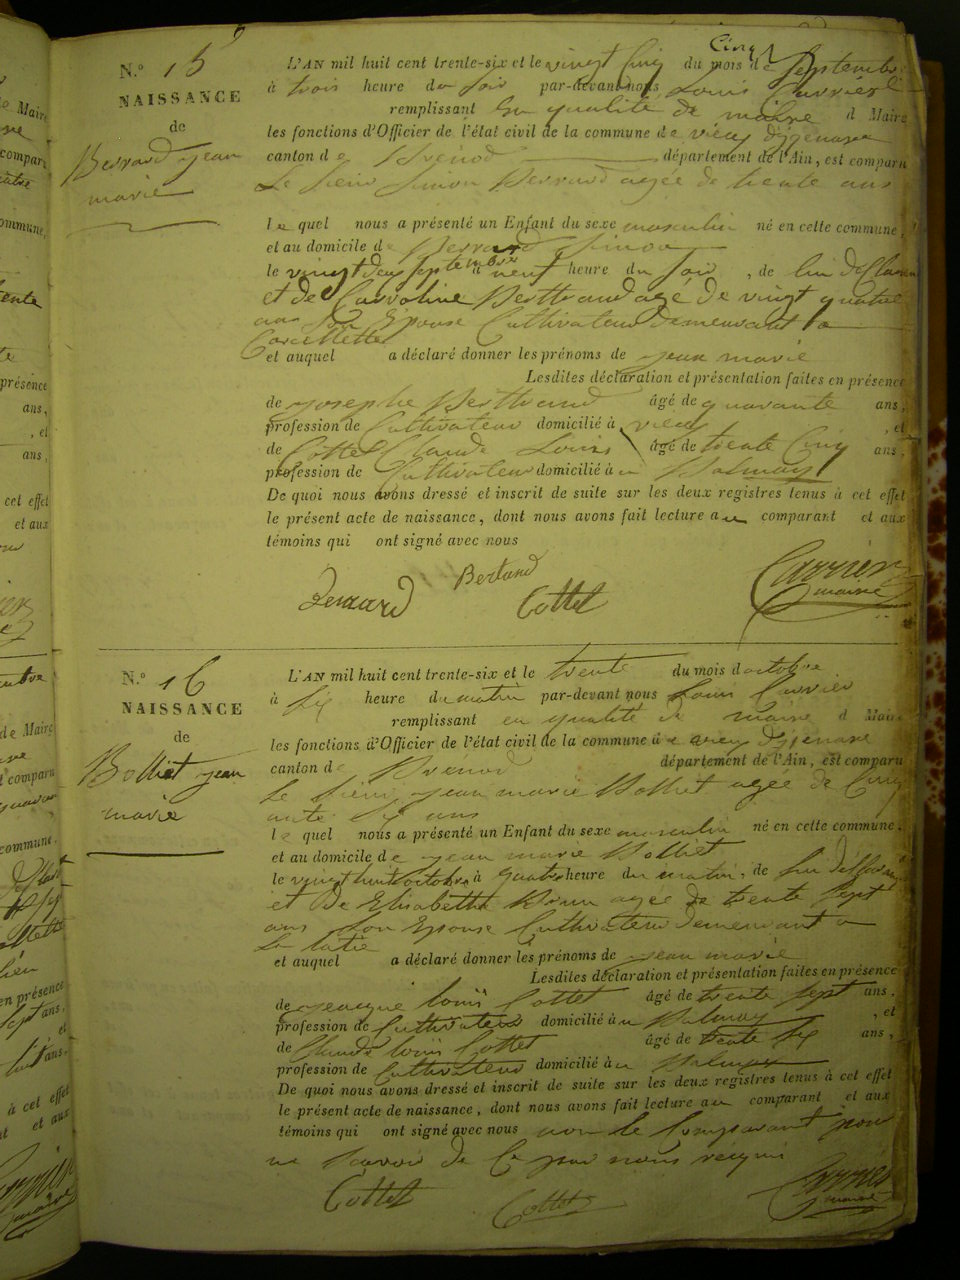 N.º 15
NAISSANCE
de
Berrard jean
marie
L'AN mil huit cent trente-six et le vingt cinq du mois de Septembre
à trois heure du soir par-devant nous Louis Carrier
remplissant en qualité de maire d Maire
les fonctions d'Officier de l'état civil de la commune de vieu d'izenave
canton de Brénod département de l'Ain, est comparu
Le sieur Simon Berrard agée de trente ans
lequel nous a présenté un Enfant du sexe masculin né en cette commune,
et au domicile de Berrard Simon
le vingt deux septembre à neuf heure du soir, de lui déclarant
et de Carroline Berthrand agé de vingt quatre
ans son Epouse Cultivateur demeurant a
Corcellette
et auquel a déclaré donner les prénoms de jean marie
Lesdites déclaration et présentation faites en présence
de josephe Berthrand âgé de quarante ans,
profession de Cultivateur domicilié à vieu, et
de Cottet Claude Louis âgé de trente cinq ans,
profession de Cultivateur domicilié à Balmay
De quoi nous avons dressé et inscrit de suite sur les deux registres tenus à cet effet
le présent acte de naissance, dont nous avons fait lecture au comparant et aux
témoins qui ont signé avec nous
Berrard Bertand Cottet Carrier
maire
N.º 16
NAISSANCE
de
Bolliet jean
marie
L'AN mil huit cent trente-six et le trente du mois d octobre
à six heure du matin par-devant nous Louis Carrier
remplissant en qualité de maire d Maire
les fonctions d'Officier de l'état civil de la commune de vieu d'izenave
canton de Brenod département de l'Ain, est comparu
Le sieur jean marie Bolliet agée de Cinq
ante six ans
lequel nous a présenté un Enfant du sexe masculin né en cette commune,
et au domicile de jean marie Bolliet
le vingt huit octobre à quatre heure du matin, de lui déclarant
et de Elisabette agée de trente sept
ans son Epouse Cultivateur demeurant a
et auquel a déclaré donner les prénoms de jean marie
Lesdites déclaration et présentation faites en présence
de jeacque louis Cottet âgé de trente sept ans,
profession de Cultivateur domicilié à Balmay, et
de Claude louis Cottet âgé de trente six ans,
profession de Cultivateur domicilié à Balmay
De quoi nous avons dressé et inscrit de suite sur les deux registres tenus à cet effet
le présent acte de naissance, dont nous avons fait lecture au comparant et aux
témoins qui ont signé avec nous non le Comparant pour
ne savoir de Ce par nous requis
Cottet Cottet Carrier
maire